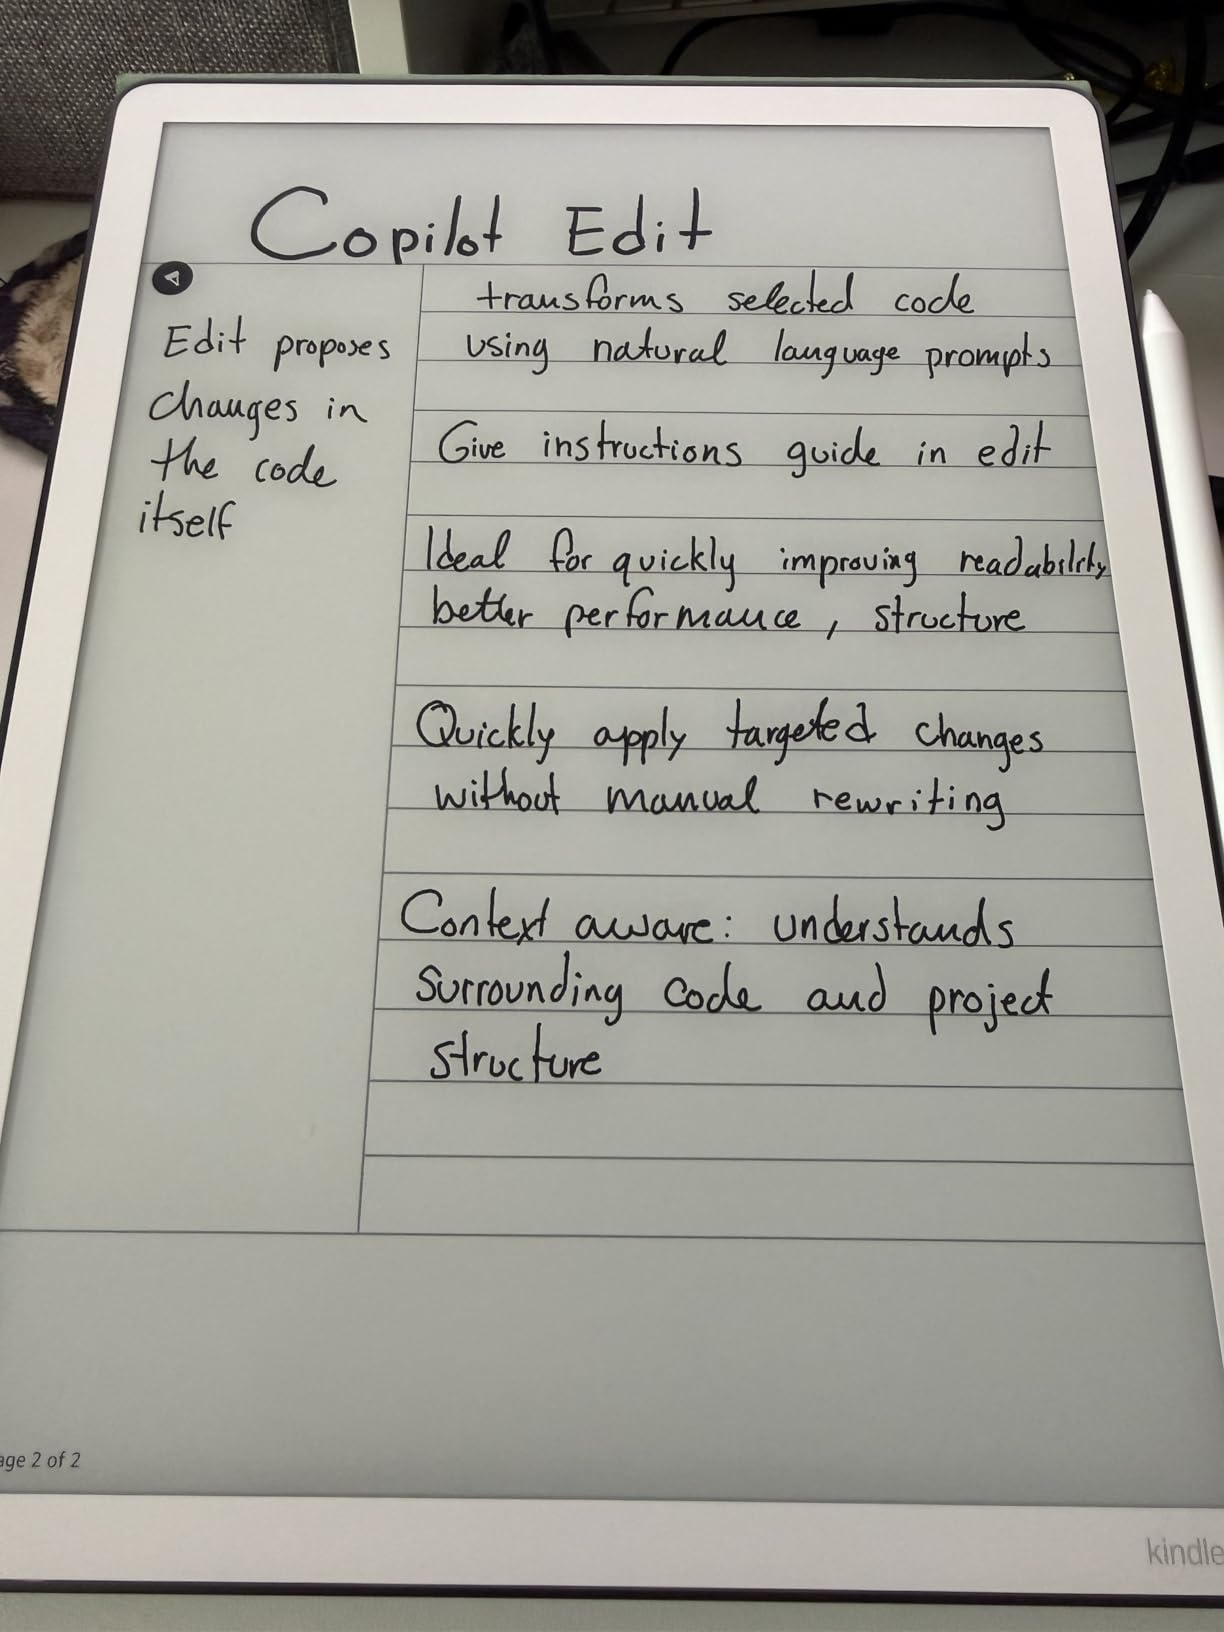 Copilot Edit
Edit proposes
changes in
the code
itself
transforms selected code
using natural language prompts
Give instructions guide in edit
Ideal for quickly improving readability
better performance, structure
Quickly apply targeted changes
without manual rewriting
Context aware: understands
surrounding code and project
structure
age 2 of 2
kindle